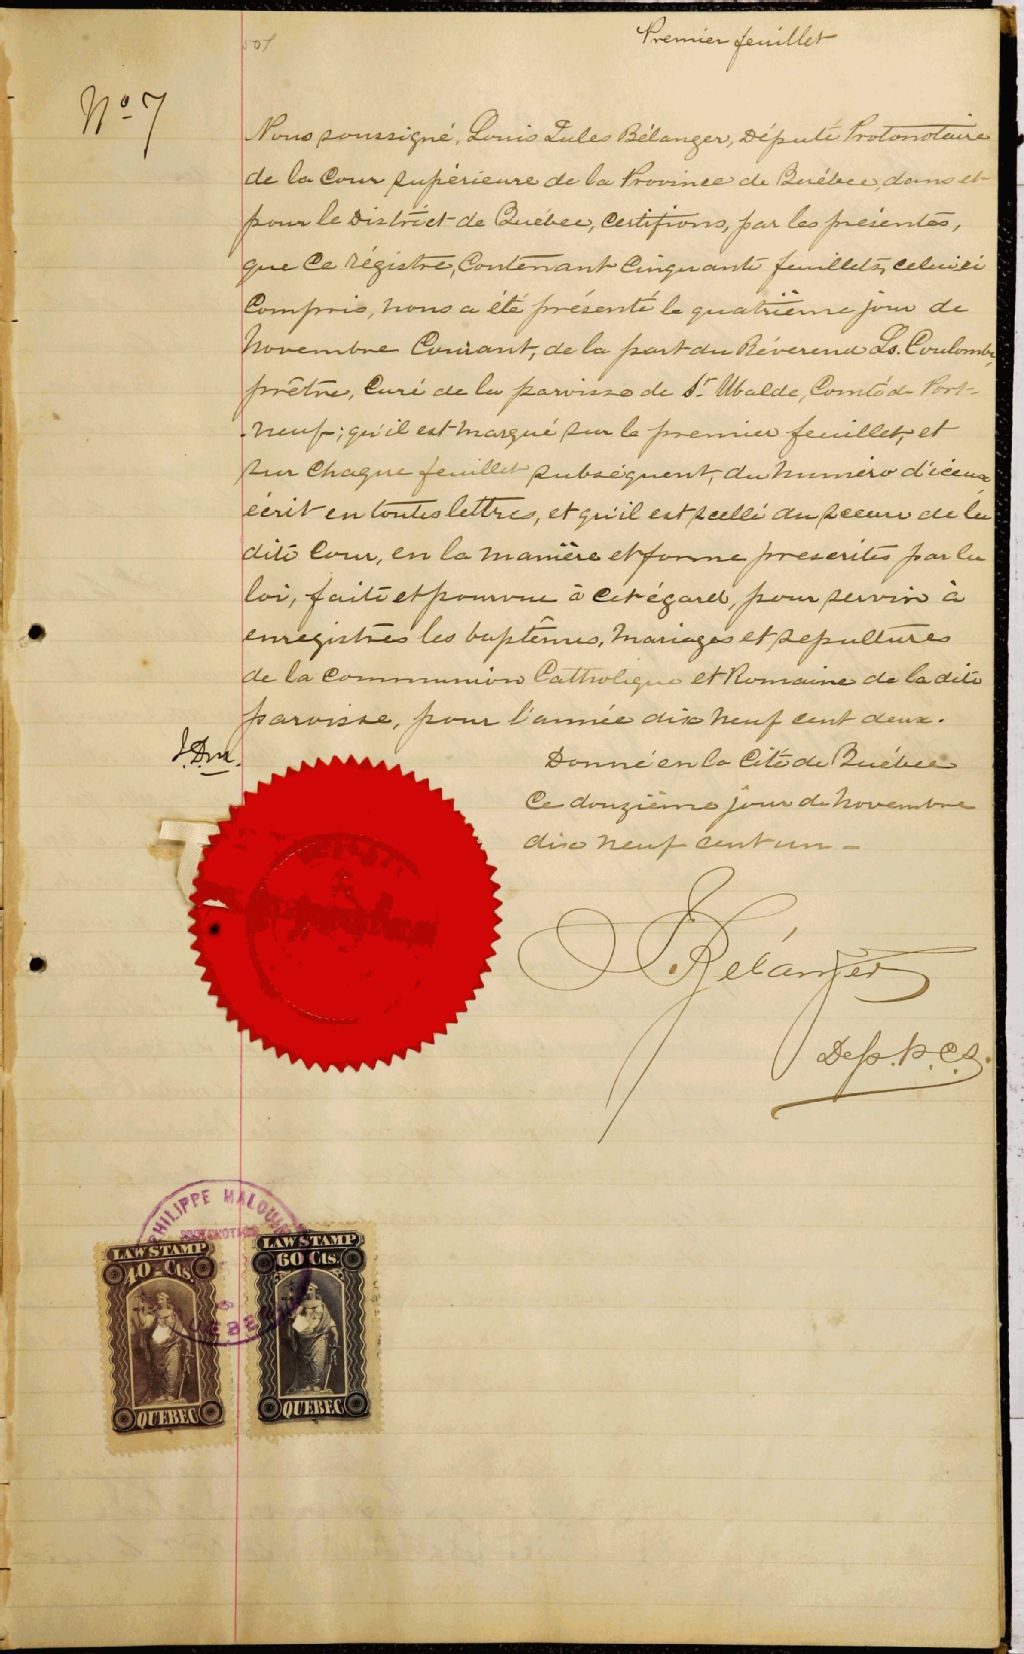 Premier feuillet
No 7
Nous soussigné, Louis Jules Bélanger, Député Protonotaire
de la Cour supérieure de la Province de Québec, dans et
pour le District de Québec, certifions, par les présentes,
que ce régistre, contenant cinquante feuillets, celui ci
compris, nous a été présenté le quatrième jour de
Novembre Courant, de la part du Révérend Ls. Coulombe,
prêtre, Curé de la paroisse de St Ubalde, Comté de Port-
-neuf; qu'il est marqué sur le premier feuillet, et
sur chaque feuillet subséquent, du numéro d'iceux
écrit en toutes lettres, et qu'il est scellé du sceau de la
dite Cour, en la manière et forme prescrites par la
loi, faite et pourvue à cet égard, pour servir à
enregistrer les baptêmes, mariages et sepultures
de la communion Catholique et Romaine de la dite
paroisse, pour l'année dix neuf cent deux.
Donné en la Cité de Québec
Ce douzième jour de Novembre
dix neuf cent un -
Bélanger
Dep. P.C.S.
PHILIPPE MALOUIN
PROTONOTAIRE
QUEBEC
LAW STAMP
40 Cts.
QUEBEC
LAW STAMP
60 Cts.
QUEBEC